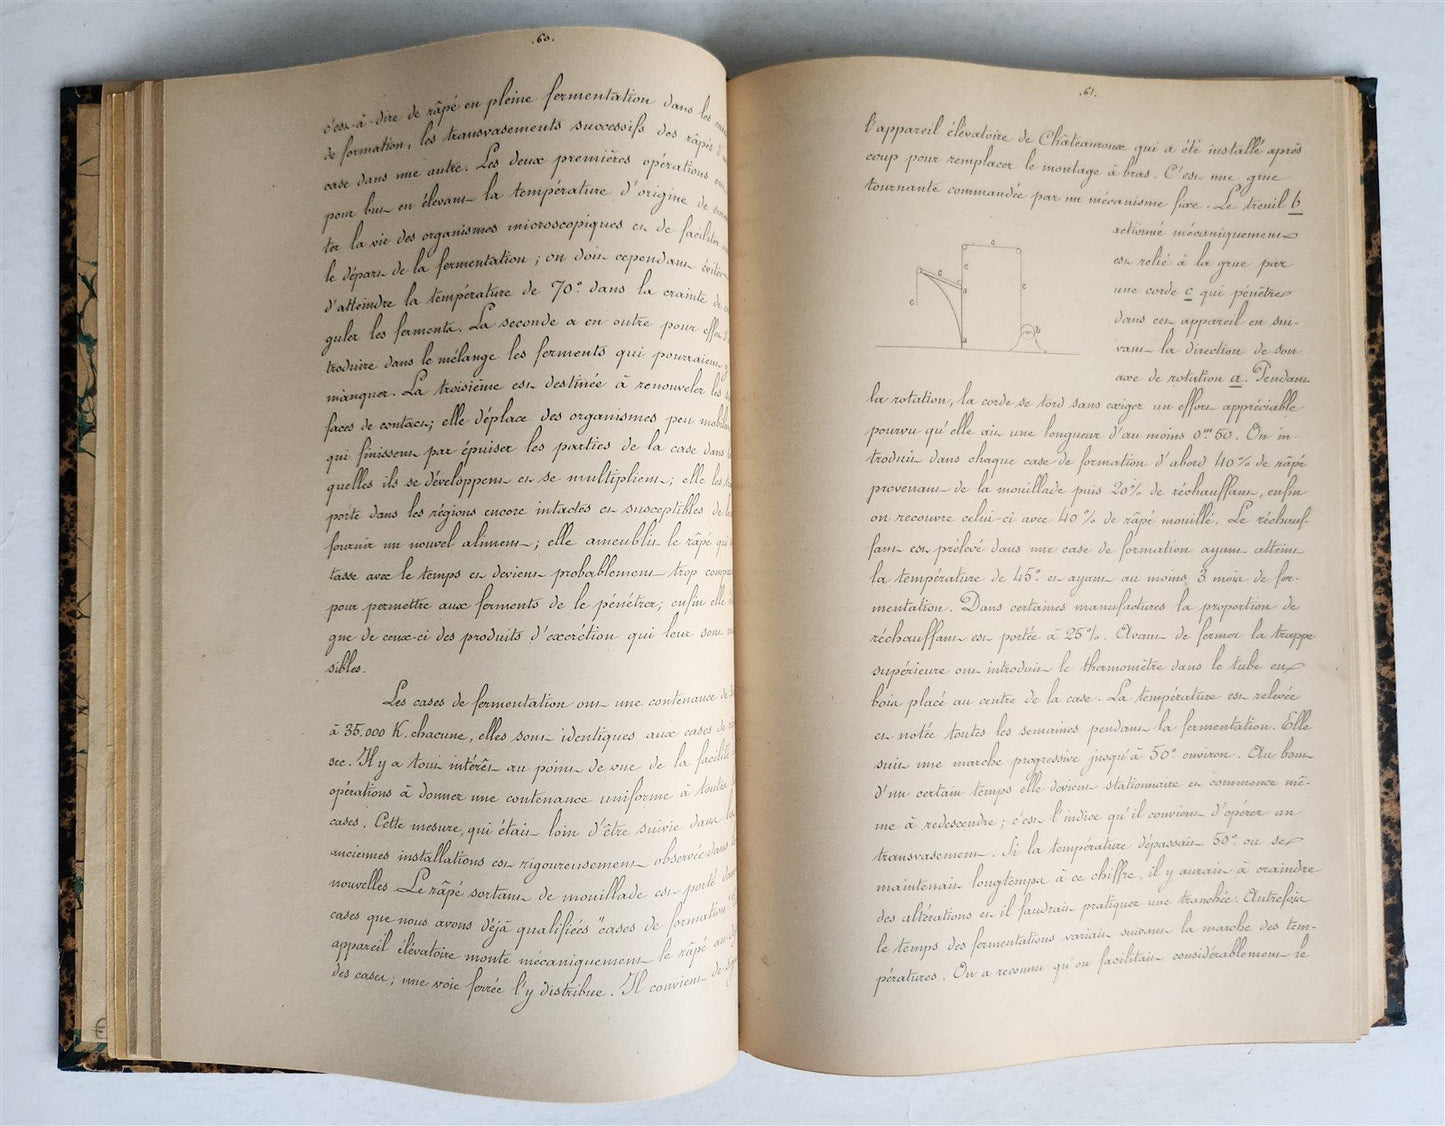 .60.
c'est-à-dire de râpé en pleine fermentation dans les cases
de formation, les transvasements successifs des râpés d'une
case dans une autre. Les deux premières opérations ont
pour but en élevant la température d'origine de
ter la vie des organismes microscopiques et de faciliter
le départ de la fermentation ; on doit cependant éviter
d'atteindre la température de 70° dans la crainte de
guler les ferments. La seconde a en outre pour effet
troduire dans le mélange les ferments qui pourraient y
manquer. La troisième est destinée à renouveler les
faces de contact ; elle déplace des organismes peu mobiles
qui finissent par épuiser les parties de la case dans
quelles ils se développent et se multiplient ; elle les
porte dans les régions encore intactes et susceptibles de
fournir un nouvel aliment ; elle ameublit le râpé qui
tasse avec le temps et devient probablement trop
pour permettre aux ferments de le pénétrer ; enfin elle
gne de ceux-ci des produits d'excrétion qui leur sont
sibles.
Les cases de fermentation ont une contenance de
à 35.000 K. chacune, elles sont identiques aux cases de
sec. Il y a tout intérêt au point de vue de la facilité
opérations à donner une contenance uniforme à toutes
cases. Cette mesure, qui était loin d'être suivie dans
anciennes installations est rigoureusement observée dans
nouvelles. Le râpé sortant de mouillade est porté dans
cases que nous avons déjà qualifiées "cases de formation".
appareil élévatoire monte mécaniquement le râpé
des cases ; une voie ferrée l'y distribue. Il convient de
.61.
l'appareil élévatoire de Châteauroux qui a été installé après
coup pour remplacer le montage à bras. C'est une grue
tournante commandée par un mécanisme fixe. Le treuil b
actionné mécaniquement
est relié à la grue par
une corde c qui pénètre
dans cet appareil en sui-
vant la direction de son
axe de rotation a. Pendant
la rotation, la corde se tord sans exiger un effort appréciable
pourvu qu'elle ait une longueur d'au moins 0m50. On in-
troduit dans chaque case de formation d'abord 40% de râpé
provenant de la mouillade puis 20% de réchauffant, enfin
on recouvre celui-ci avec 40% de râpé mouillé. Le réchauf-
fant est prélevé dans une case de formation ayant atteint
la température de 45° et ayant au moins 3 mois de fer-
mentation. Dans certaines manufactures la proportion de
réchauffant est portée à 25%. Avant de fermer la trappe
supérieure on introduit le thermomètre dans le tube en
bois placé au centre de la case. La température est relevée
et notée toutes les semaines pendant la fermentation. Elle
suit une marche progressive jusqu'à 50° environ. Au bout
d'un certain temps elle devient stationnaire et commence mê-
me à redescendre ; c'est l'indice qu'il convient d'opérer un
transvasement. Si la température dépassait 50° ou se
maintenait longtemps à ce chiffre, il y aurait à craindre
des altérations et il faudrait pratiquer une tranchée. Autrefois
le temps des fermentations variait suivant la marche des tem-
pératures. On a reconnu qu'on facilitait considérablement le